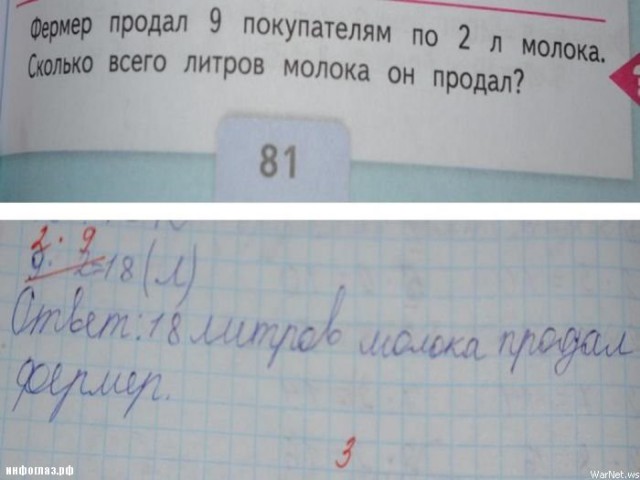 Фермер продал 9 покупателям по 2 л молока.
Сколько всего литров молока он продал?
81
2 · 9
9 · 2=18 (л)
Ответ: 18 литров молока продал
фермер.
3
инфоглаз.рф
WarNet.ws